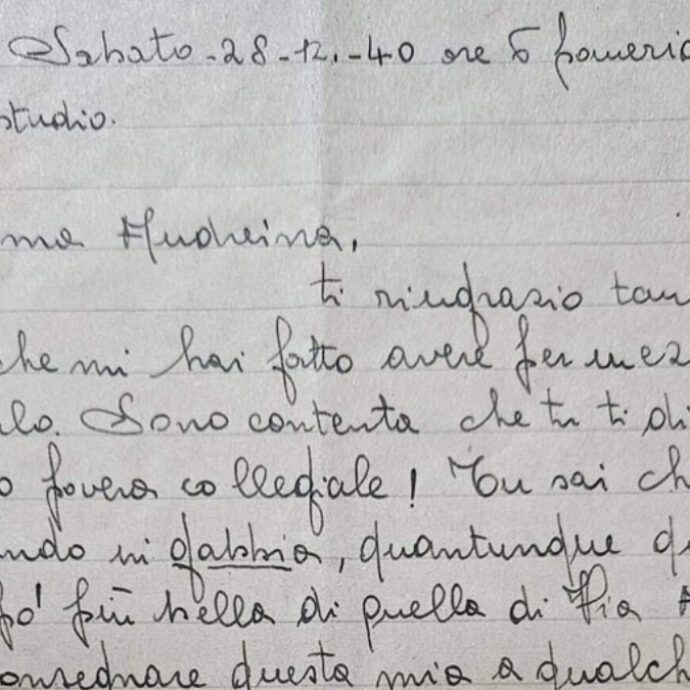 Sabato - 28 - 12. - 40 ore 6 pomerid
studio.
ma Andreina,
ti ringrazio tan
che mi hai fatto avere per mez
lo. Sono contenta che tu ti di
o povera collegiale! Tu sai ch
ndo in gabbia, quantunque qu
po' più bella di quella di Pia
onsegnare questa mia a qualch